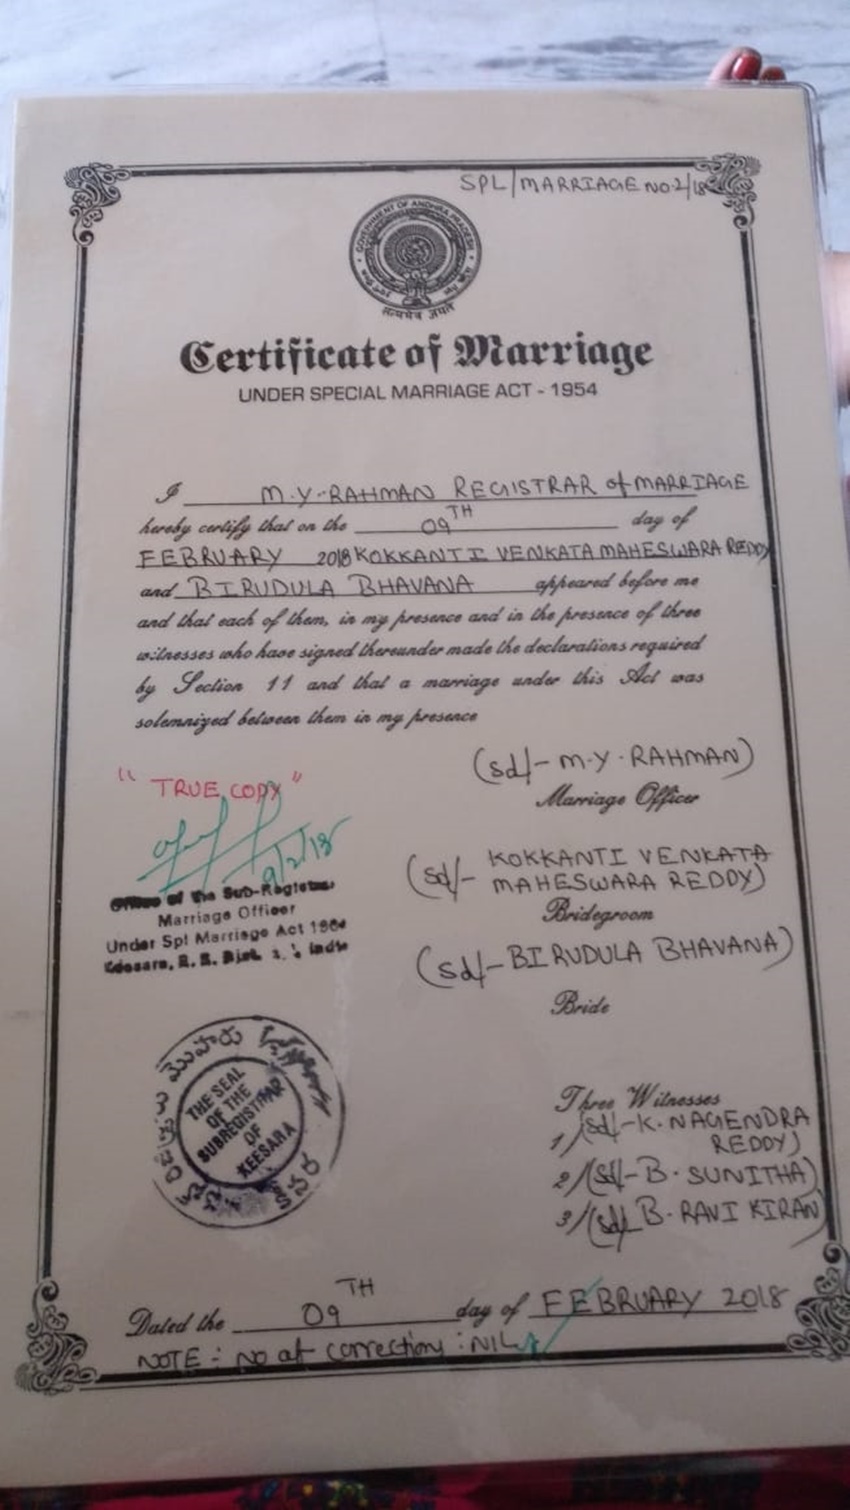 SPL/MARRIAGE NO.2/18
GOVERNMENT OF ANDHRA PRADESH
सत्यमेव जयते
Certificate of Marriage
UNDER SPECIAL MARRIAGE ACT - 1954
I M.Y-RAHMAN REGISTRAR of MARRIAGE
hereby certify that on the 09TH day of
FEBRUARY 2018 KOKKANTI VENKATA MAHESWARA REDDY
and BIRUDULA BHAVANA appeared before me
and that each of them, in my presence and in the presence of three
witnesses who have signed thereunder made the declarations required
by Section 11 and that a marriage under this Act was
solemnized between them in my presence
(sd/- M.Y.RAHMAN)
Marriage Officer
"TRUE COPY"
9/2/18
Office of the Sub-Registrar
Marriage Officer
Under Spl Marriage Act 1954
Keesara, R. R. Dist.
(sd/- KOKKANTI VENKATA
MAHESWARA REDDY)
Bridegroom
(sd/- BIRUDULA BHAVANA)
Bride
THE SEAL
OF THE
SUBREGISTRAR
OF
KEESARA
Three Witnesses
1/(sd/-K. NAGENDRA
REDDY)
2/(sd/-B. SUNITHA)
3/(sd/ B. RAVI KIRAN)
Dated the 09TH day of FEBRUARY 2018
NOTE : NO of correction : NIL